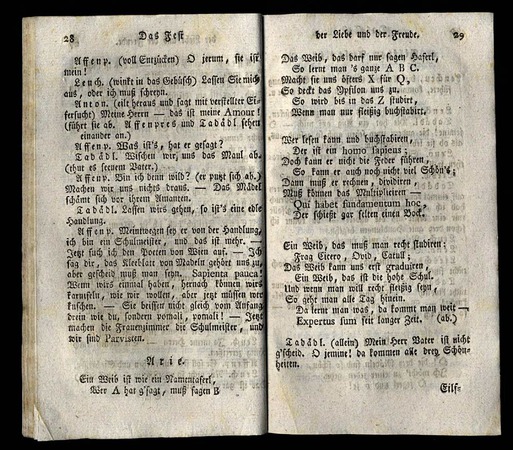 28 Das Fest
Affenp. (voll Entzücken) O jerum, sie ist
mein!
Lench. (winkt in das Gebüsch) Lassen Sie mich
aus, oder ich muß schreyn.
Anton. (eilt heraus und sagt mit verstellter Ei-
fersucht) Meine Herrn — das ist meine Amour!
(führt sie ab. Affenpres und Tabädl sehen
einander an.)
Affenp. Was ist's, hat er gesagt?
Tabädl. Wischen wir uns das Maul ab.
(thut es seinem Vater.)
Affenp. Bin ich denn wild? (er putzt sich ab.)
Machen wir uns nichts draus. — Das Mädel
schämt sich vor ihrem Amanten.
Tabädl. Lassen wirs gehen, so ist's eine edle
Handlung.
Affenp. Meinetwegen sey er von der Handlung,
ich bin ein Schulmeister, und das ist mehr. —
Jetzt such ich den Poeten von Wien auf. — Ich
sag dir, das Kleeblatt von Madeln gehört uns zu,
aber gescheid muß man seyn. Sapienta pauca!
Wenn wirs einmal haben, hernach können wirs
karnifeln, wie wir wollen, aber jetzt müssen wir
kuschen. — Sie beißer nicht gleich vom Anfang
drein wie du, sondern vomali, vomali! — Jetzt
machen die Frauenzimmer die Schulmeister, und
wir sind Parvisten. —
Arie.
Ein Weib ist wie ein Namentaferl,
Wer A hat g'sagt, muß sagen B
der Liebe und der Freude. 29
Das Weib, das darf nur sagen Haserl,
So lernt man 's ganze A B C.
Macht sie uns öfters X für Q,
So deckt das Ypsilon uns zu.
So wird bis in das Z studirt,
Wenn man nur fleißig buchstabirt.
Wer lesen kann, und buchstabiren,
Der ist ein homo sapiens;
Doch kann er nicht die Feder führen,
So kann er auch noch nicht viel Schön's;
Dann muß er rechnen, dividiren,
Muß können das Multipliciren —
Qui habet fundamentum hoc,
Der schießt gar selten einen Bock.
Ein Weib, das muß man recht studiren:
Frag Cicero, Ovid, Catull;
Das Weib kann uns erst graduiren,
Ein Weib, das ist die hohe Schul.
Und wenn man will recht fleißig seyn,
So geht man alle Tag hinein.
Da lernt man was, da kommt man weit —
Expertus sum seit langer Zeit. (ab.)
Tabädl. (allein) Mein Herr Vater ist nicht
g'scheid. O jemine! da kommen alle drey Schön-
heiten.
Eilf-